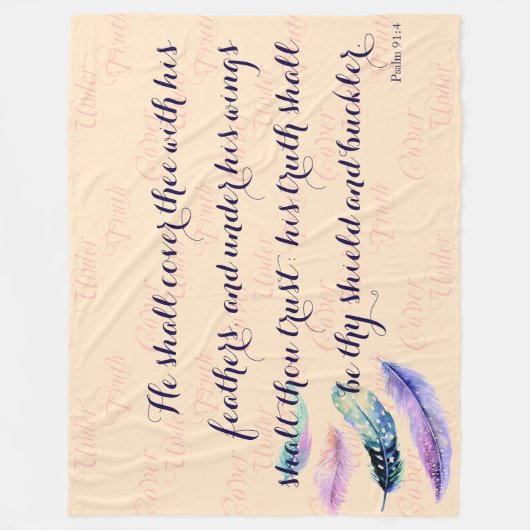 He shall cover thee with his
feathers, and under his wings
shalt thou trust: his truth shall
be thy shield and buckler.
Psalm 91:4
Under
Truth
Cover
Under
Truth
Cover
Under
Truth
Cover
Under
Cover
Under
Cover
Under
Cover
Under
Cover
Under